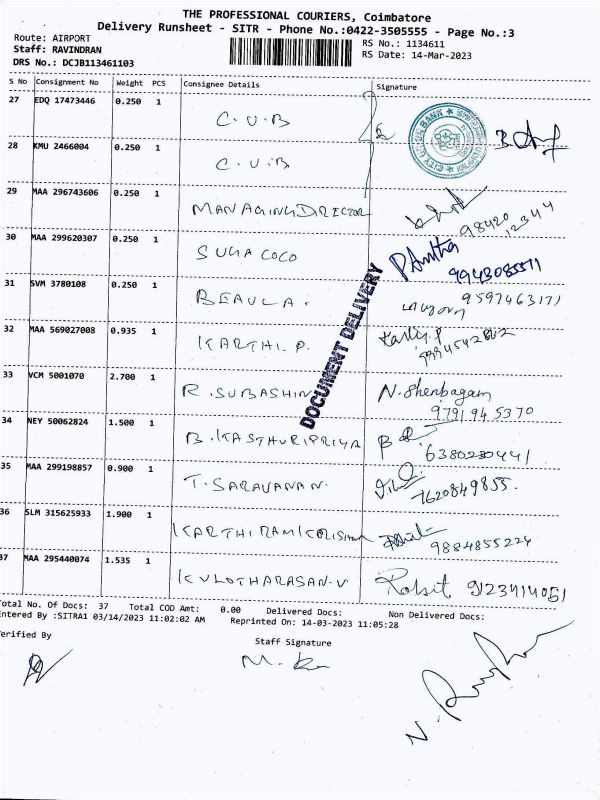 THE PROFESSIONAL COURIERS, Coimbatore
Delivery Runsheet - SITR - Phone No.:0422-3505555 - Page No.:3
Route: AIRPORT
Staff: RAVINDRAN
DRS No.: DCJB113461103
RS No.: 1134611
RS Date: 14-Mar-2023
S No Consignment No Weight PCS Consignee Details Signature
27 EDQ 17473446 0.250 1 C.U.B
28 KMU 2466004 0.250 1 C.U.B
CITY UNION BANK
29 MAA 296743606 0.250 1 MANAGING DIRECTOR 98420 12344
30 MAA 299620307 0.250 1 SUGA COCO P.Anitha 9943085571
31 SVM 3780108 0.250 1 BEAULA. 9597463171
32 MAA 569027008 0.935 1 KARTHI. P.
DOCUMENT DELIVERY
33 VCM 5001070 2.700 1 R.SUBASHINI N.Shenbagam 9791945370
34 NEY 50062824 1.500 1 B.KASTHURIPRIYA 6380230441
35 MAA 299198857 0.900 1 T.SARAVANAN. 7620849855.
36 SLM 315625933 1.900 1 KARTHI RAM KRISHNA 9884855224
37 MAA 295440074 1.535 1 KULOTHARASAN.V Rohit 9123714051
Total No. Of Docs: 37 Total COD Amt: 0.00 Delivered Docs: Non Delivered Docs:
Entered By :SITRA1 03/14/2023 11:02:02 AM Reprinted On: 14-03-2023 11:05:28
Verified By
Staff Signature